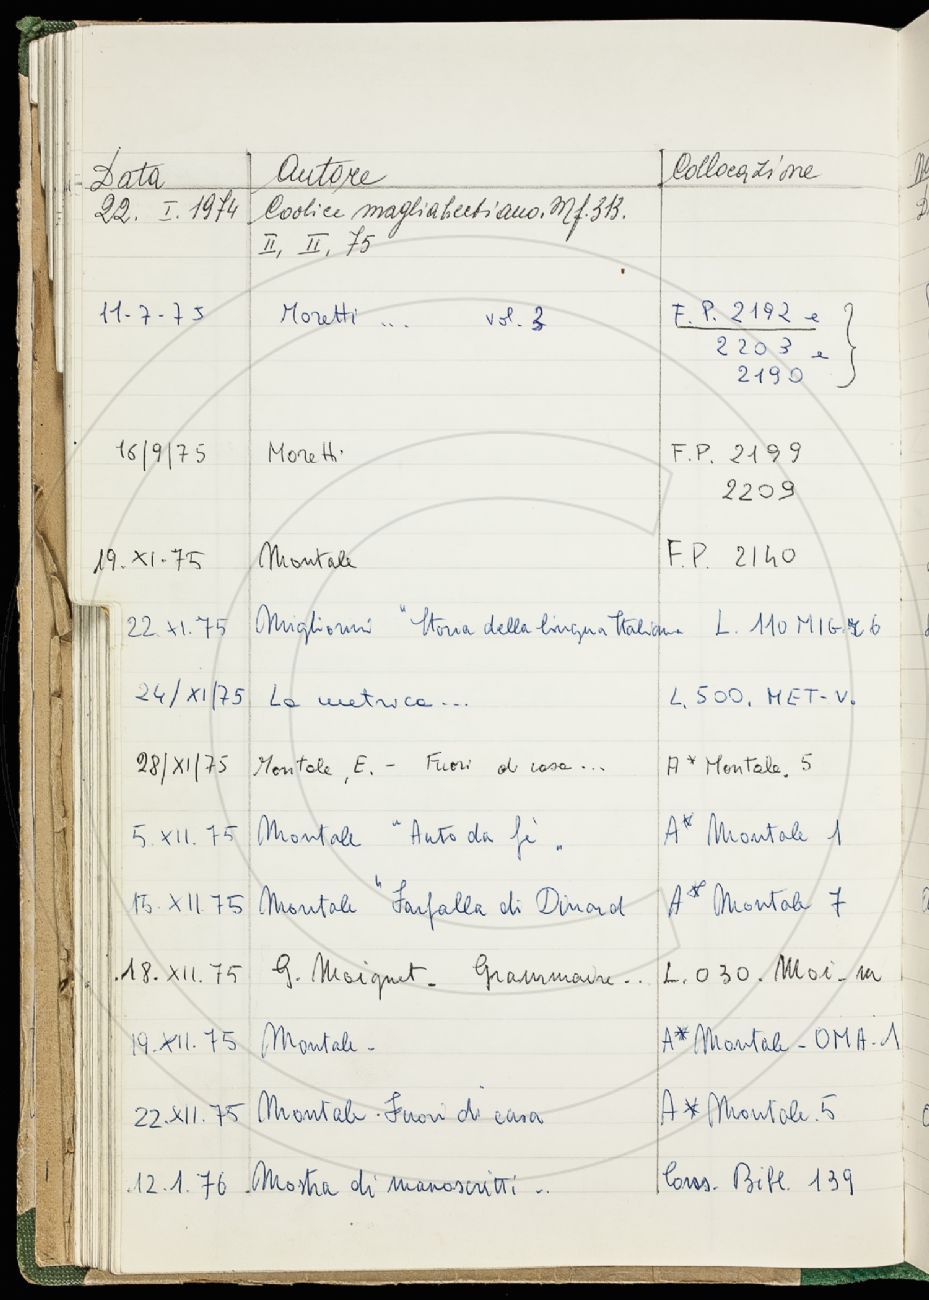 Data Autore Collocazione
22. I. 1974 Codice magliabechiano. Mf. 313.
II, II, 75
11-7-75 Moretti ... vol. 3 F.P. 2192 e
2203 e
2190
16/9/75 Moretti F.P. 2199
2209
19. XI. 75 Montale F.P. 2140
22. XI. 75 Migliorini "Storia della lingua Italiana L. 110 MIG. 6
24/XI/75 La metrica... L. 500. MET-V.
28/XI/75 Montale, E. - Fuori di casa... A* Montale. 5
5. XII. 75 Montale "Auto da fé" A* Montale 1
15. XII. 75 Montale "Farfalla di Dinard A* Montale 7
18. XII. 75 G. Moignet - Grammaire... L. 030. Moi-m
19. XII. 75 Montale - A* Montale - OMA-1
22. XII. 75 Montale - Fuori di casa A* Montale. 5
12.1.76 Mostra di manoscritti ... Cons. Bibl. 139